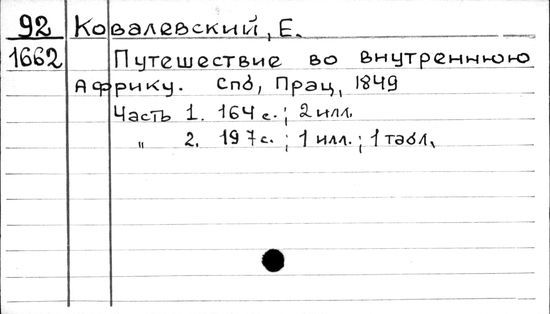 92 Ковалевский, Е.
1662 Путешествие во внутреннюю
Африку. Спб, Прац, 1849
Часть 1. 164 с.; 2 илл.
" 2. 197с.; 1 илл.; 1 табл.